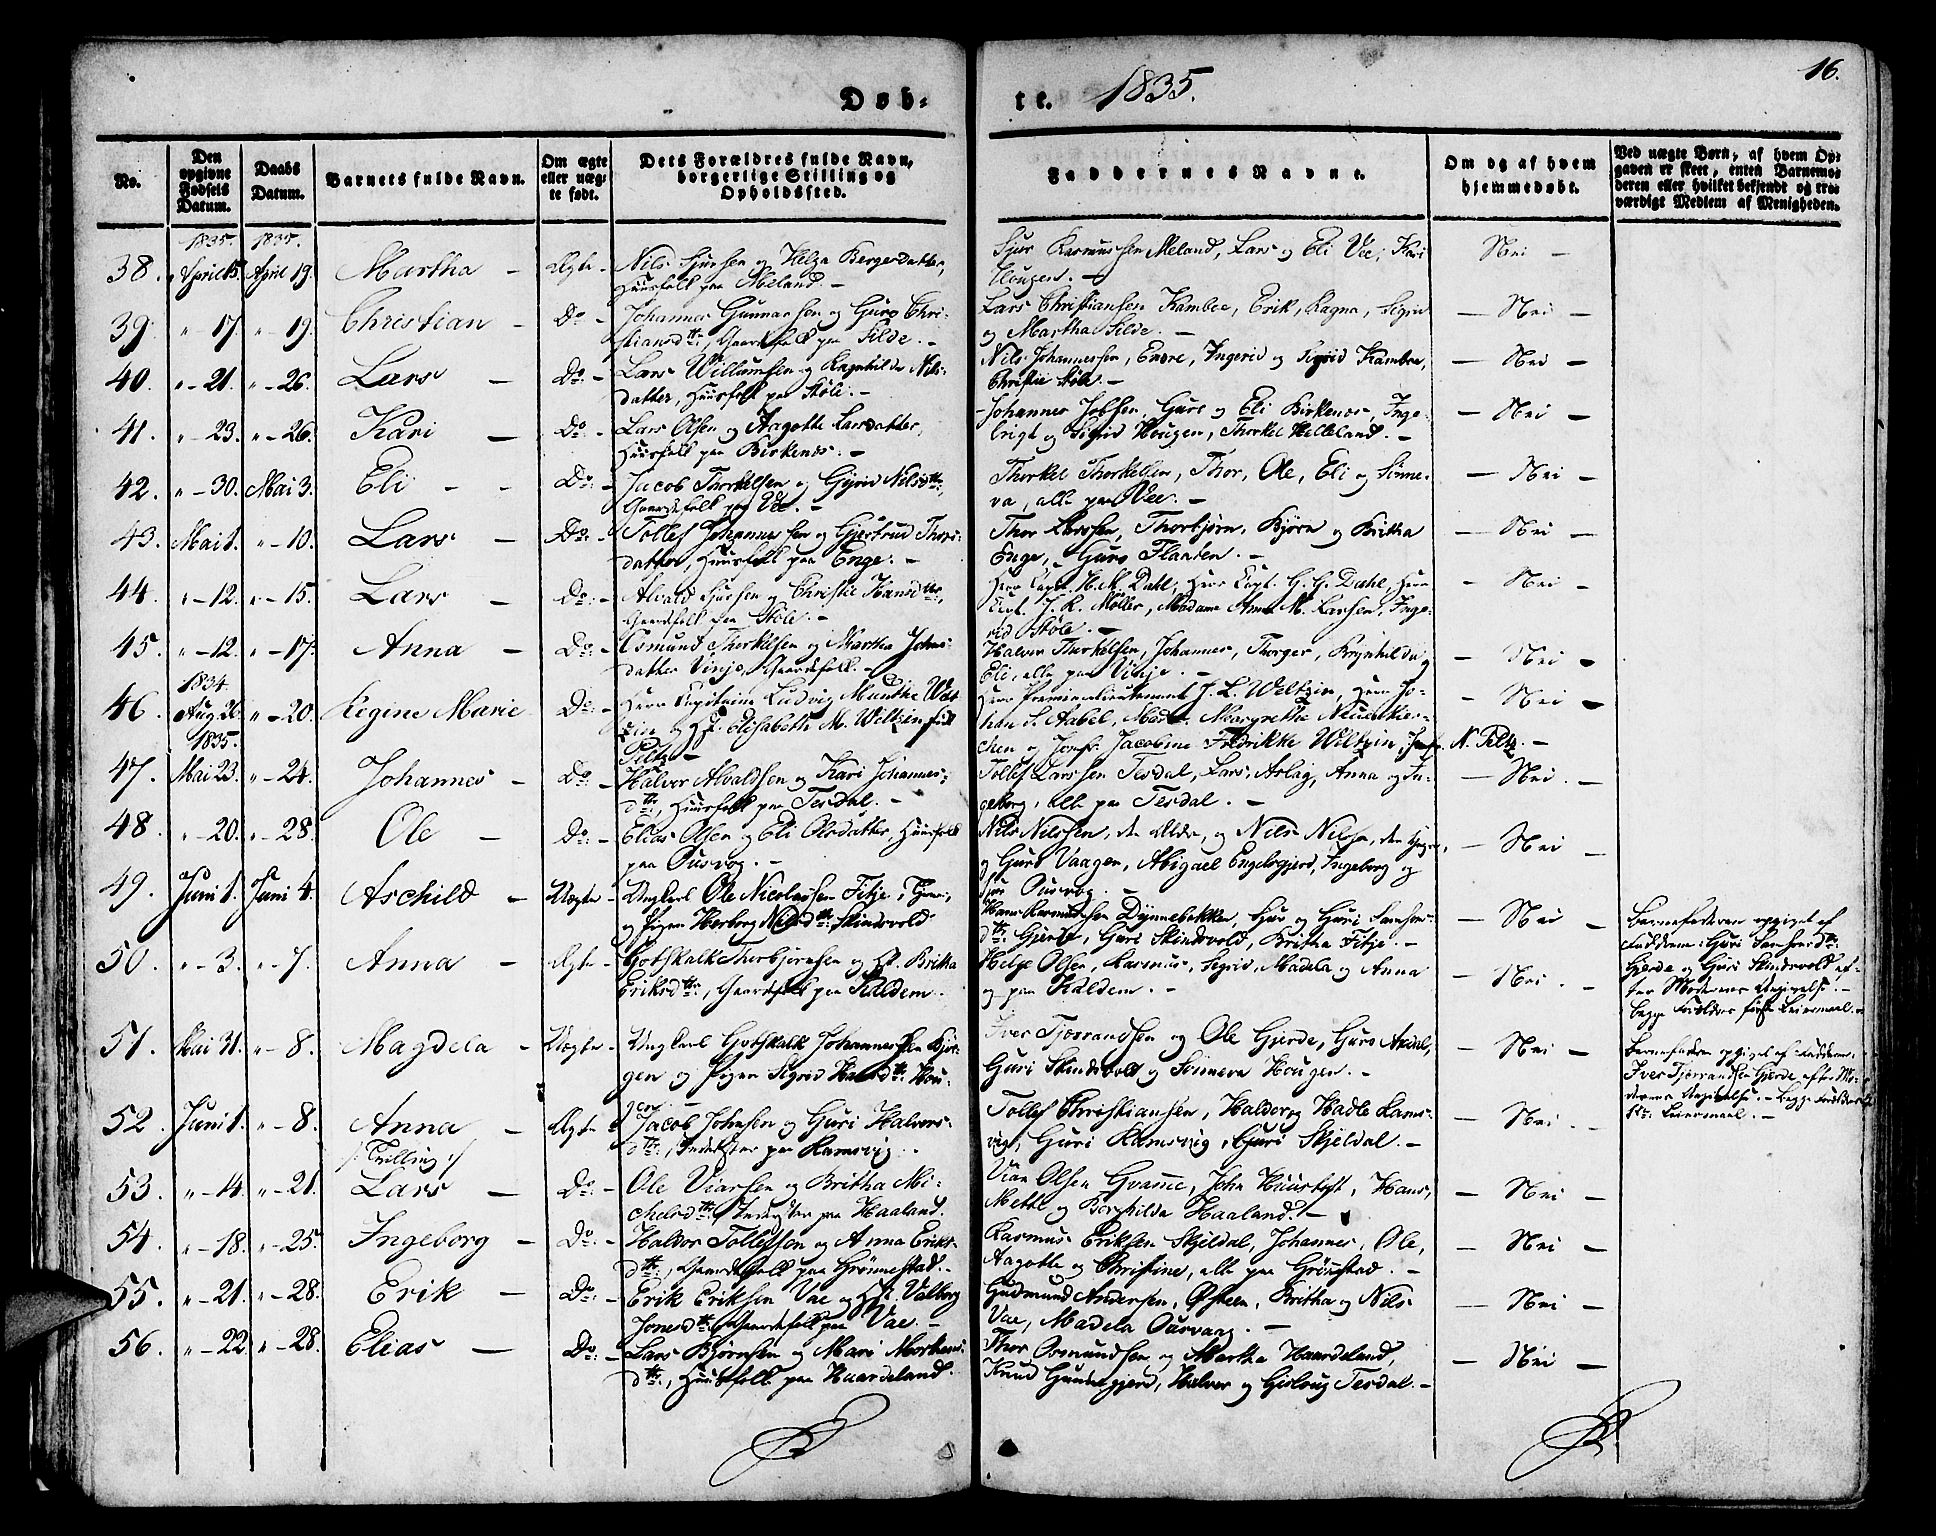 16.
Døb-
te. 1835.
No.
Den opgivne Fødsels Datum.
Daabs Datum.
Barnets fulde Navn.
Om ægte eller uægte født.
Dets Forældres fulde Navn, borgerlige Stilling og Opholdssted.
Faddernes Navne.
Om og af hvem hjemmedøbt.
Ved uægte Børn, af hvem Opgaven er skeet, enten Barnemoderen eller hvilket bekjendt og troværdigt Medlem af Menigheden.
1835. 1835.
38. April 15. April 19. Martha - Ægte - Nils Sjursen og Helga Bergesdatter, Huusfolk paa Meland. - Sjur Rasmussen Meland, Lars og Eli Vee, Kari Hougen. - Nei -
39. " - 17. " - 19. Christian - Do - Johannes Gunnarsen og Guro Christiansdtr:, Gaardfolk paa Silde. - Lars Christiansen Kambee, Erik, Ragna, Segrid og Martha Silde. - Nei -
40. " - 21. " - 26. Lars - Do - Lars Willumsen og Ragnhilde Nilsdatter, Huusfolk paa Støle. - Nils Johannessen, Endre, Ingerid og Sigrid Kambee, Christie Støle. - Nei -
41. " - 23. " - 26. Kari - Do - Lars Olsen og Aagotte Larsdatter, Huusfolk paa Birkenes. - Johannes Jobsen, Guro og Eli Birkenes, Ingebrigt og Sigrid Hougen, Thorkel Helleland. - Nei -
42. " - 30. Mai 3. Eli - Do - Jacob Thorkelsen og Gyrid Nilsdtr:, Gaardfolk paa Vee. - Thorkel Thorkelsen, Thor, Ole, Eli og Sinneva, alle paa Vee. - Nei -
43. Mai 1. " - 10. Lars - Do: - Tollef Johannessen og Gjertrud Thorsdatter, Huusfolk paa Enge. - Thor Larssen, Thorbjørn, Bjørn og Britha Enge, Guro Flaaten. - Nei -
44. " - 12. " - 15. Lars - Do: - Alvald Sjursen og Christie Hansdtr:, Gaardfolk paa Støle. - Herr Capt. H. A. Dahl, Herr Capt. G. G. Dahl, Herr Capt. J. R. Møller, Madame Anna M. Larsen, Ingerid Støle. - Nei -
45. " - 12. " - 17. Anna - Do: - Osmund Thorkelsen og Martha Johnsdatter Vinje, Gaardfolk. - Halvor Thorkelsen, Johannes, Thorger, Ragnhilda og Eli, alle paa Vinje. - Nei -
1834.
46. Aug. 26. " - 20. Regine Marie Do: - Herr Capitaine Ludvig Munthe Weltzin og H. Elisabeth M. Weltzin født Peltz. - Herr Premierlieutenant J. L. Weltzin, Herr Johan S. Aabel, Mad. Margrethe Nieuenkirchen og Jomfr. Jacobine Fredrikke Weltzin, Jomfr. N. Peltz. - Nei -
1835.
47. Mai 23. " - 24. Johannes - Do - Halvor Alvaldsen og Kari Johannesdtr:, Huusfolk paa Tesdal. - Tollef Larssen Tesdal, Lars, Aslag, Anna og Ingeborg, alle paa Tesdal. - Nei -
48. " - 20. " - 28. Ole - Do: - Elias Olsen og Eli Olsdatter, Huusfolk paa Ousvog. - Nils Nilssen, den Ældre, og Nils Nilsen, den Yngre, og Guro Vaagen, Abigael Engelsgjerd, Ingeborg og Ousvog. - Nei -
49. Juni 1. Juni 4. Aschild - Uægte - Ungkarl Ole Nicolaisen Fitje, og Pigen Herborg Nilsdtr: Skindvold Hans Rasmussen Dynnebakken, Sjur og Guri Samsonsdtr: Gjerde, Guri Skindsvold, Britha Fitje. - Nei - Barnefaderen opgivet af Faddrene: Guri Samsonsdtr: Gjerde og Guri Skindsvold efter Moderens Angivelse. - begge Forældres første Leiermaal. -
50. " - 3. " - 7. Anna - Ægte - Gotskalk Thorbjørnsen og H. Britha Eriksdtr:, Gaardfolk paa Kaldem. Helge Olsen, Rasmus, Segrid, Madela og Anna og paa Kaldem. - Nei. -
51. Mai 31. " - 8. Magdela - Uægte - Ungkarl Gotskalk Johannessen Bjørgen og Pigen Segrid Halvdtr: Hougen Iver Tjerrandsen og Ole Gjerde, Guro Aardal, Guri Skindsvold og Sinneva Hougen. - Nei - Barnefaderen opgivet af Fadderen, Iver Tjerrandsen Gjerde, efter Moderens Angivelse. - begge Forældres 1ste: Leiermaal. -
52. Juni 1. " - 8. Anna - Ægte - Jacob Johnsen og Guri Halvorsdtr:, Inderster paa Ramsvig. Tollef Christiansen, Haldor og Hadle Ramsvig, Guri Ramsvig, Guri Skjeldal. - Nei. -
/: Trilling :/
53. " - 14. " - 21. Lars - Do: - Ole Viarsen og Britha Michelsdtr:, Inderster paa Haaland. Vian Olsen Gvamme, John Huustoft, Hans, Mette og Borghilda Haaland. - Nei -
54. " - 18. " - 25. Ingeborg - Do: - Haldor Tollefsen og Anna Eriksdtr:, Gaardfolk paa Grønnestad. - Rasmus Eriksen Skjeldal, Johannes, Ole, Aagotte og Christine, alle paa Grønestad. - Nei -
55. " - 21. " - 28. Erik - Do: - Erik Eriksen Vae og H. Valborg Jonesdtr:, Gaardfolk paa Vae. - Gudmund Andersen, Østen, Britha og Nils Vae, Madela Ourvaag. - Nei -
56. " - 22 " - 28. Elias - Do: - Lars Bjørnsen og Mari Mortensdtr:, Huusfolk paa Haardeland. Thor Osmundsen og Martha Haardeland, Knud Gundersgjerd, Halvor og Gislaug Tesdal. - Nei -